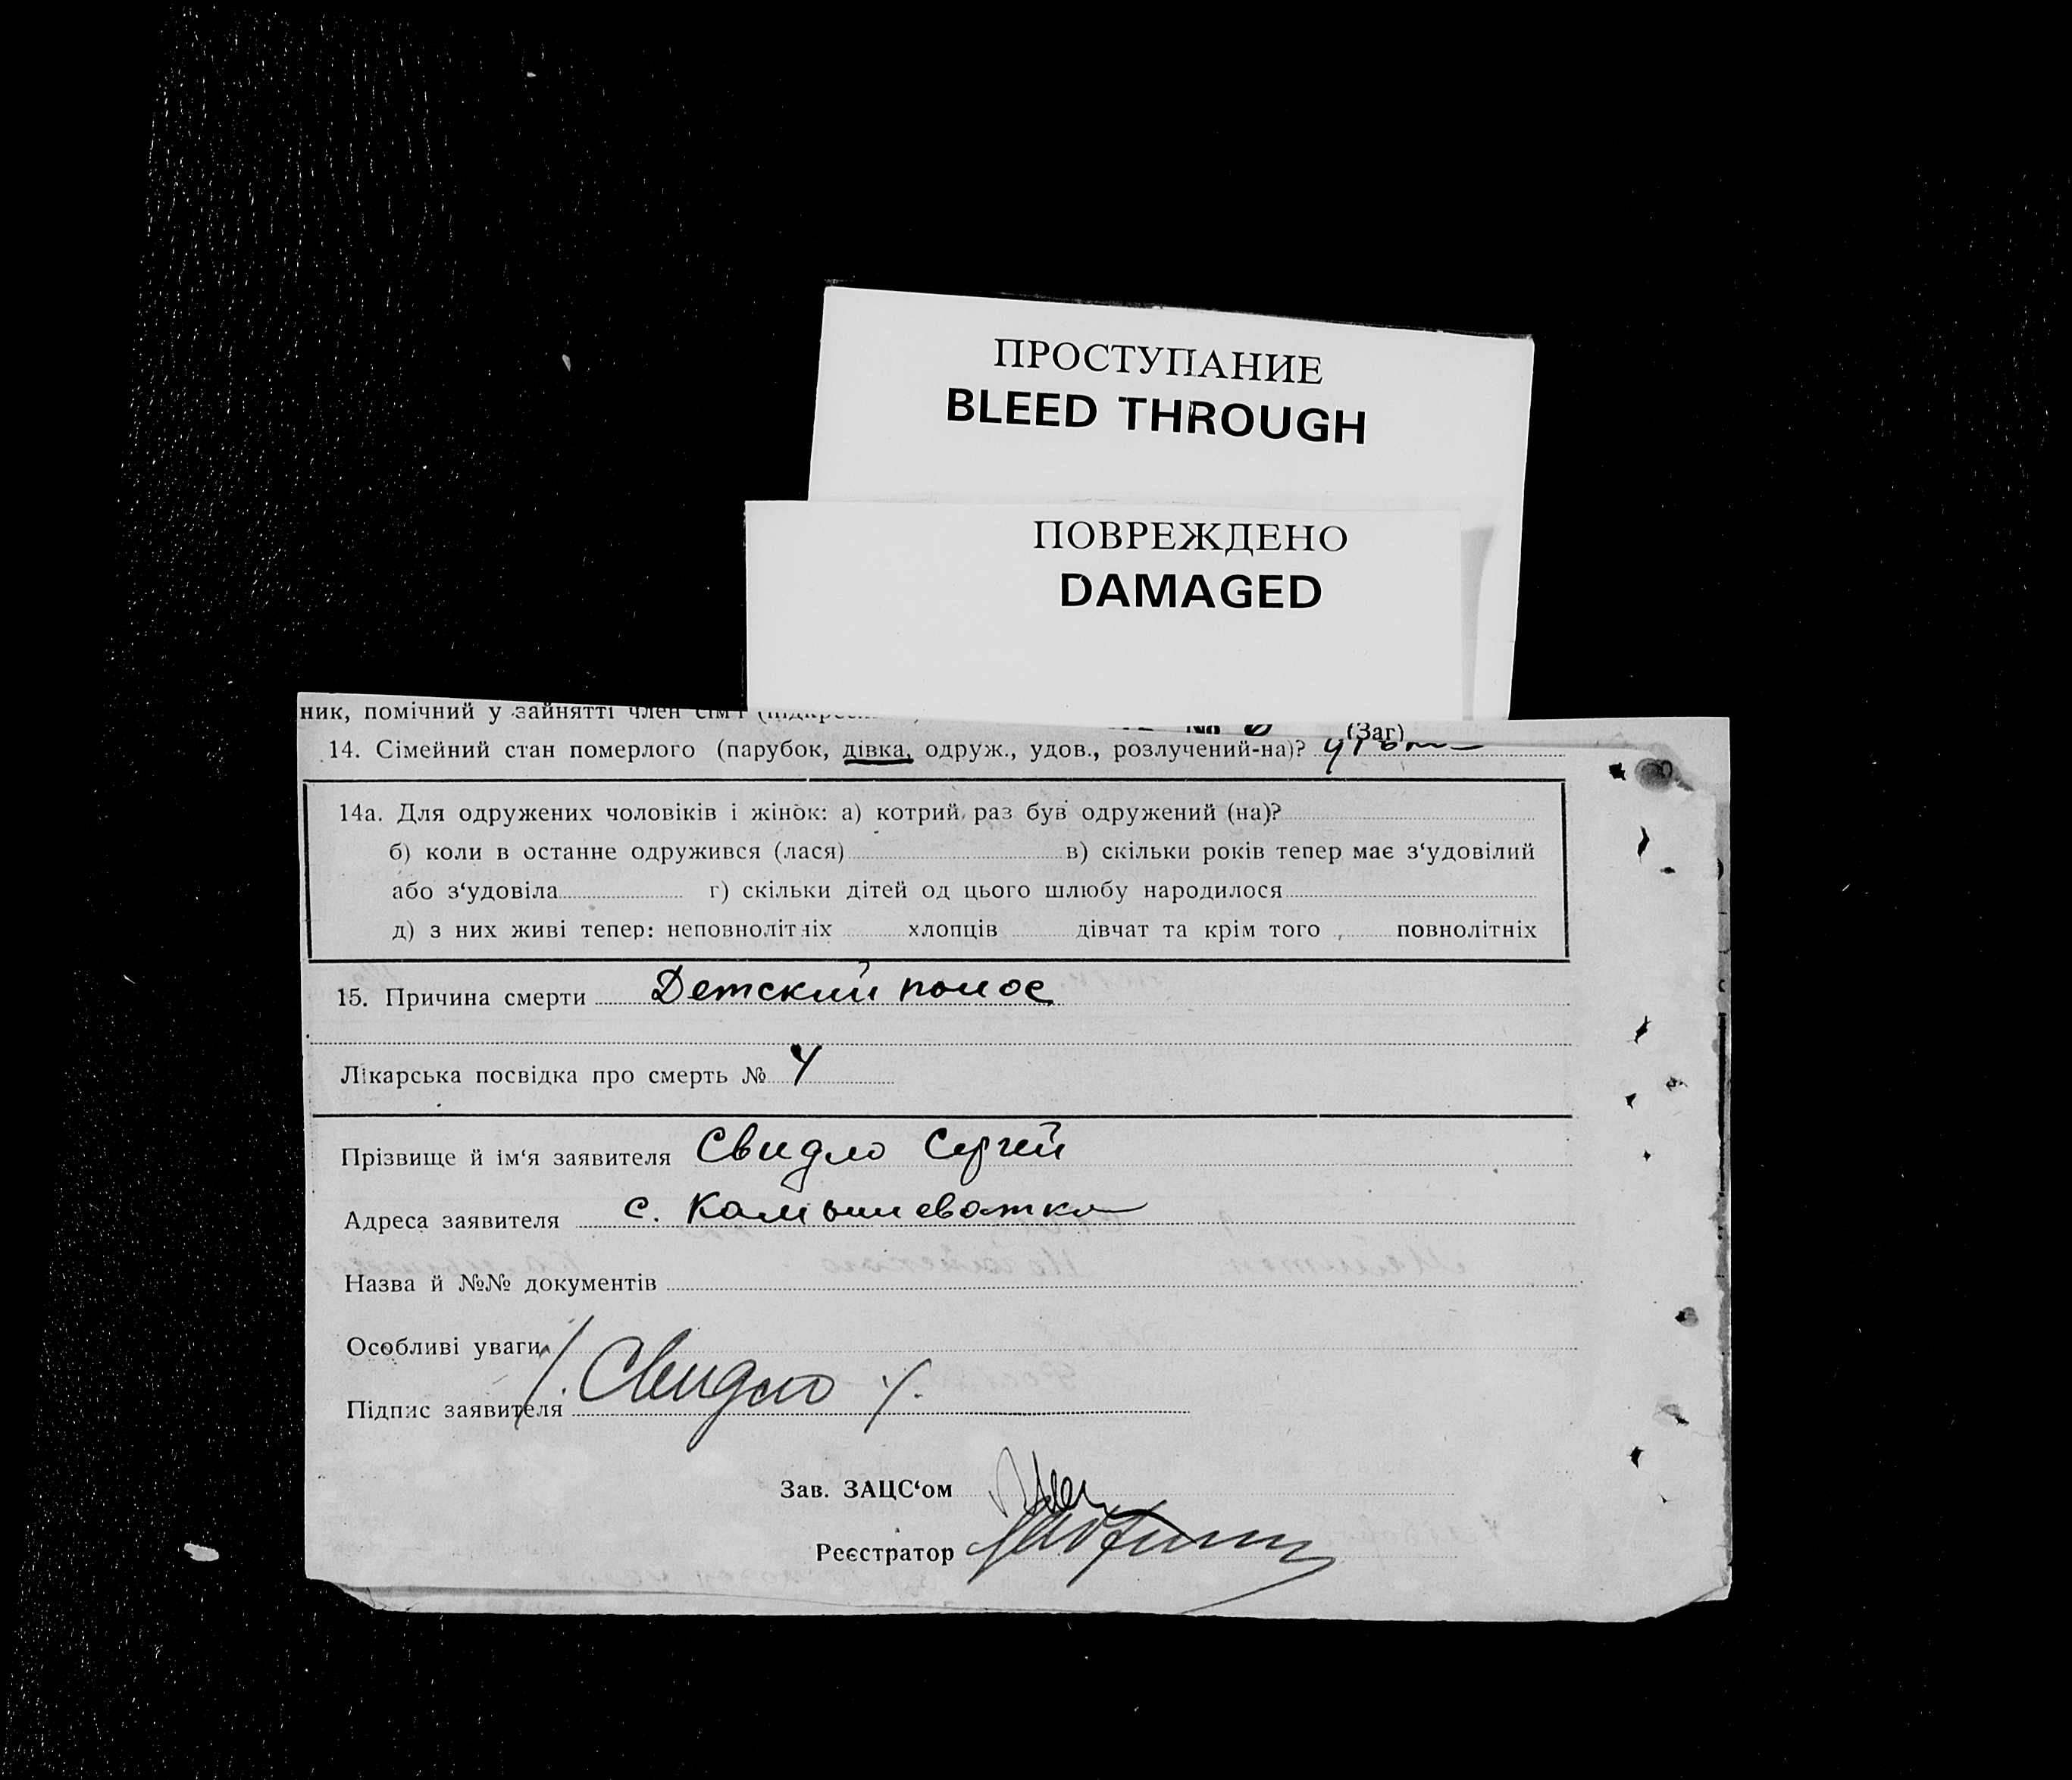 ПРОСТУПАНИЕ
BLEED THROUGH
ПОВРЕЖДЕНО
DAMAGED
ник, помічний у зайнятті член сім'ї
№ (Заг)
14. Сімейний стан померлого (парубок, дівка, одруж., удов., розлучений-на)?
14а. Для одружених чоловіків і жінок: а) котрий раз був одружений (на)?
б) коли в останне одружився (лася) в) скільки років тепер має з‘удовілий
або з‘удовіла г) скільки дітей од цього шлюбу народилося
д) з них живі тепер: неповнолітніх хлопців дівчат та крім того повнолітніх
15. Причина смерти Детский понос
Лікарська посвідка про смерть № 4
Прізвище й ім‘я заявителя Свидло Сергей
Адреса заявителя с. Камышеватка
Назва й №№ документів
Особливі уваги
Підпис заявителя /. Свидло /.
Зав. ЗАЦС‘ом
Реєстратор